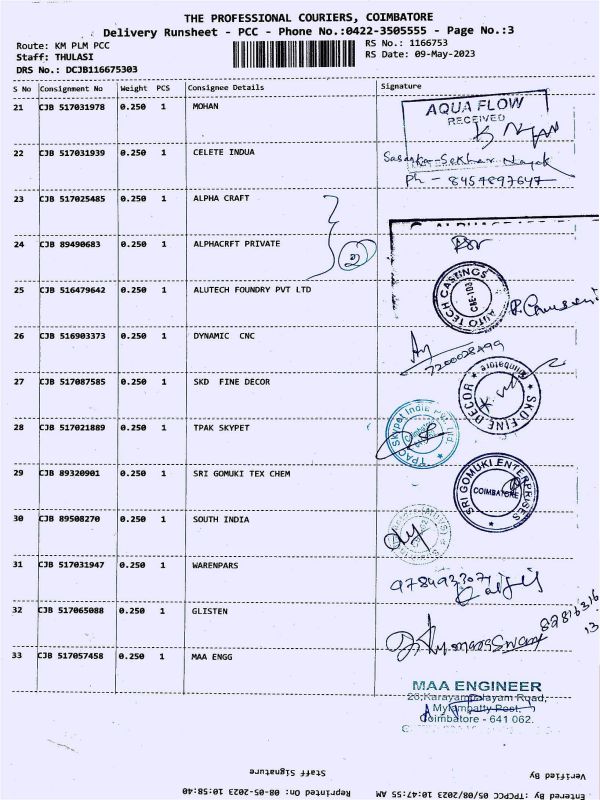 THE PROFESSIONAL COURIERS, COIMBATORE
Delivery Runsheet - PCC - Phone No.:0422-3505555 - Page No.:3
Route: KM PLM PCC
RS No.: 1166753
Staff: THULASI
RS Date: 09-May-2023
DRS No.: DCJB116675303
S No Consignment No Weight PCS Consignee Details Signature
21 CJB 517031978 0.250 1 MOHAN
AQUA FLOW
RECEIVED
22 CJB 517031939 0.250 1 CELETE INDUA
Sekhar Nayak
Ph - 8457897647
23 CJB 517025485 0.250 1 ALPHA CRAFT
24 CJB 89490683 0.250 1 ALPHACRFT PRIVATE
2
25 CJB 516479642 0.250 1 ALUTECH FOUNDRY PVT LTD
AUTO TECH CASTINGS
CBE-103
26 CJB 516903373 0.250 1 DYNAMIC CNC
7200028499
27 CJB 517087585 0.250 1 SKD FINE DECOR
SKD FINE DECOR
Coimbatore
28 CJB 517021889 0.250 1 TPAK SKYPET
TPAC Skypet India Pvt. Ltd.
29 CJB 89320901 0.250 1 SRI GOMUKI TEX CHEM
SRI GOMUKI ENTERPRISES
COIMBATORE
30 CJB 89508270 0.250 1 SOUTH INDIA
31 CJB 517031947 0.250 1 WARENPARS
9784932071
32 CJB 517065088 0.250 1 GLISTEN
33 CJB 517057458 0.250 1 MAA ENGG
MAA ENGINEER
26,Karayampalayam Road,
Mylampatty Post,
Coimbatore - 641 062.
Staff Signature
Verified By
Reprinted On: 09-05-2023 10:58:40
Entered By: TPCPCC 05/08/2023 10:47:55 AM